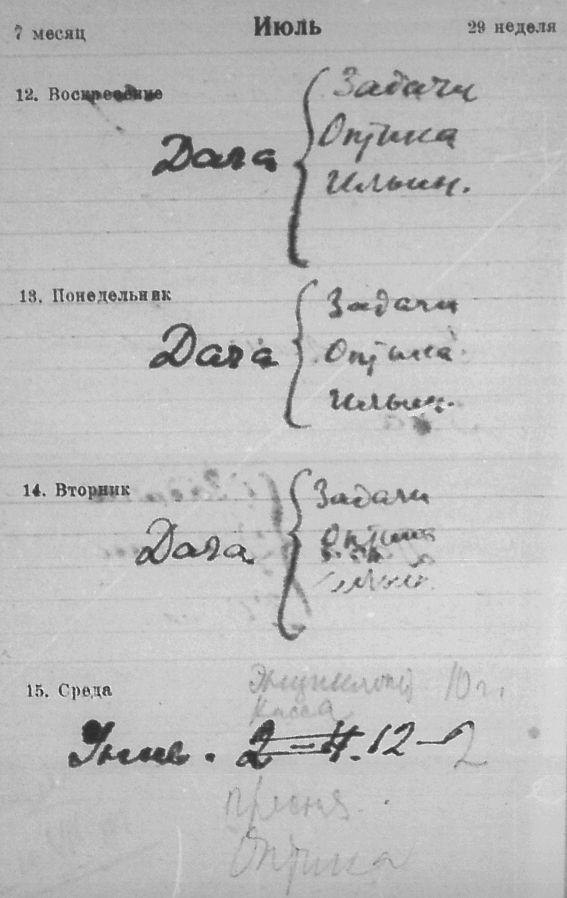 7 месяц Июль 29 неделя
12. Воскресение
Дача
Задачи
Оптика
Ильин.
13. Понедельник
Дача
Задачи
Оптика
Ильин.
14. Вторник
Дача
Задачи
Оптика
15. Среда
10 г.
Касса
Унив. 2-4. 12-2
Оптика